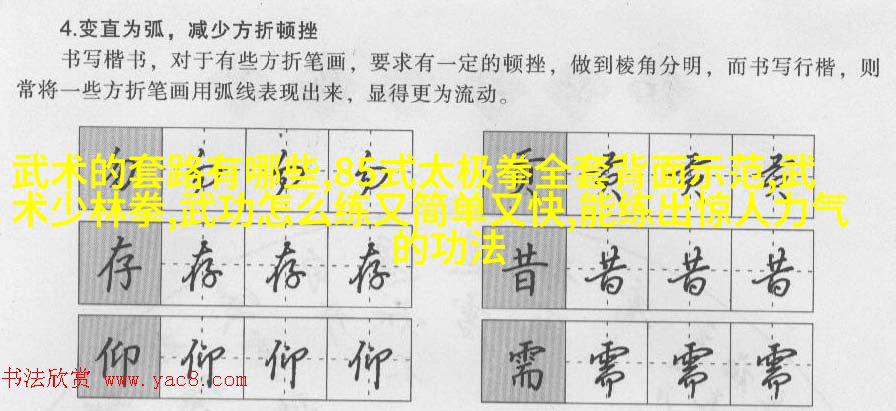 4.变直为弧，减少方折顿挫
书写楷书，对于有些方折笔画，要求有一定的顿挫，做到棱角分明，而书写行楷，则
常将一些方折笔画用弧线表现出来，显得更为流动。
武术的套路有哪些,85式太极拳全套背面示范,武
术少林拳,武功怎么练又简单又快,能练出惊人力气
的功法
贡 贡 贡 贡
存 存 存 存
昔 昔 昔 昔
仰 仰 仰 仰
需 需 需 需
书法欣赏 www.yac8.com